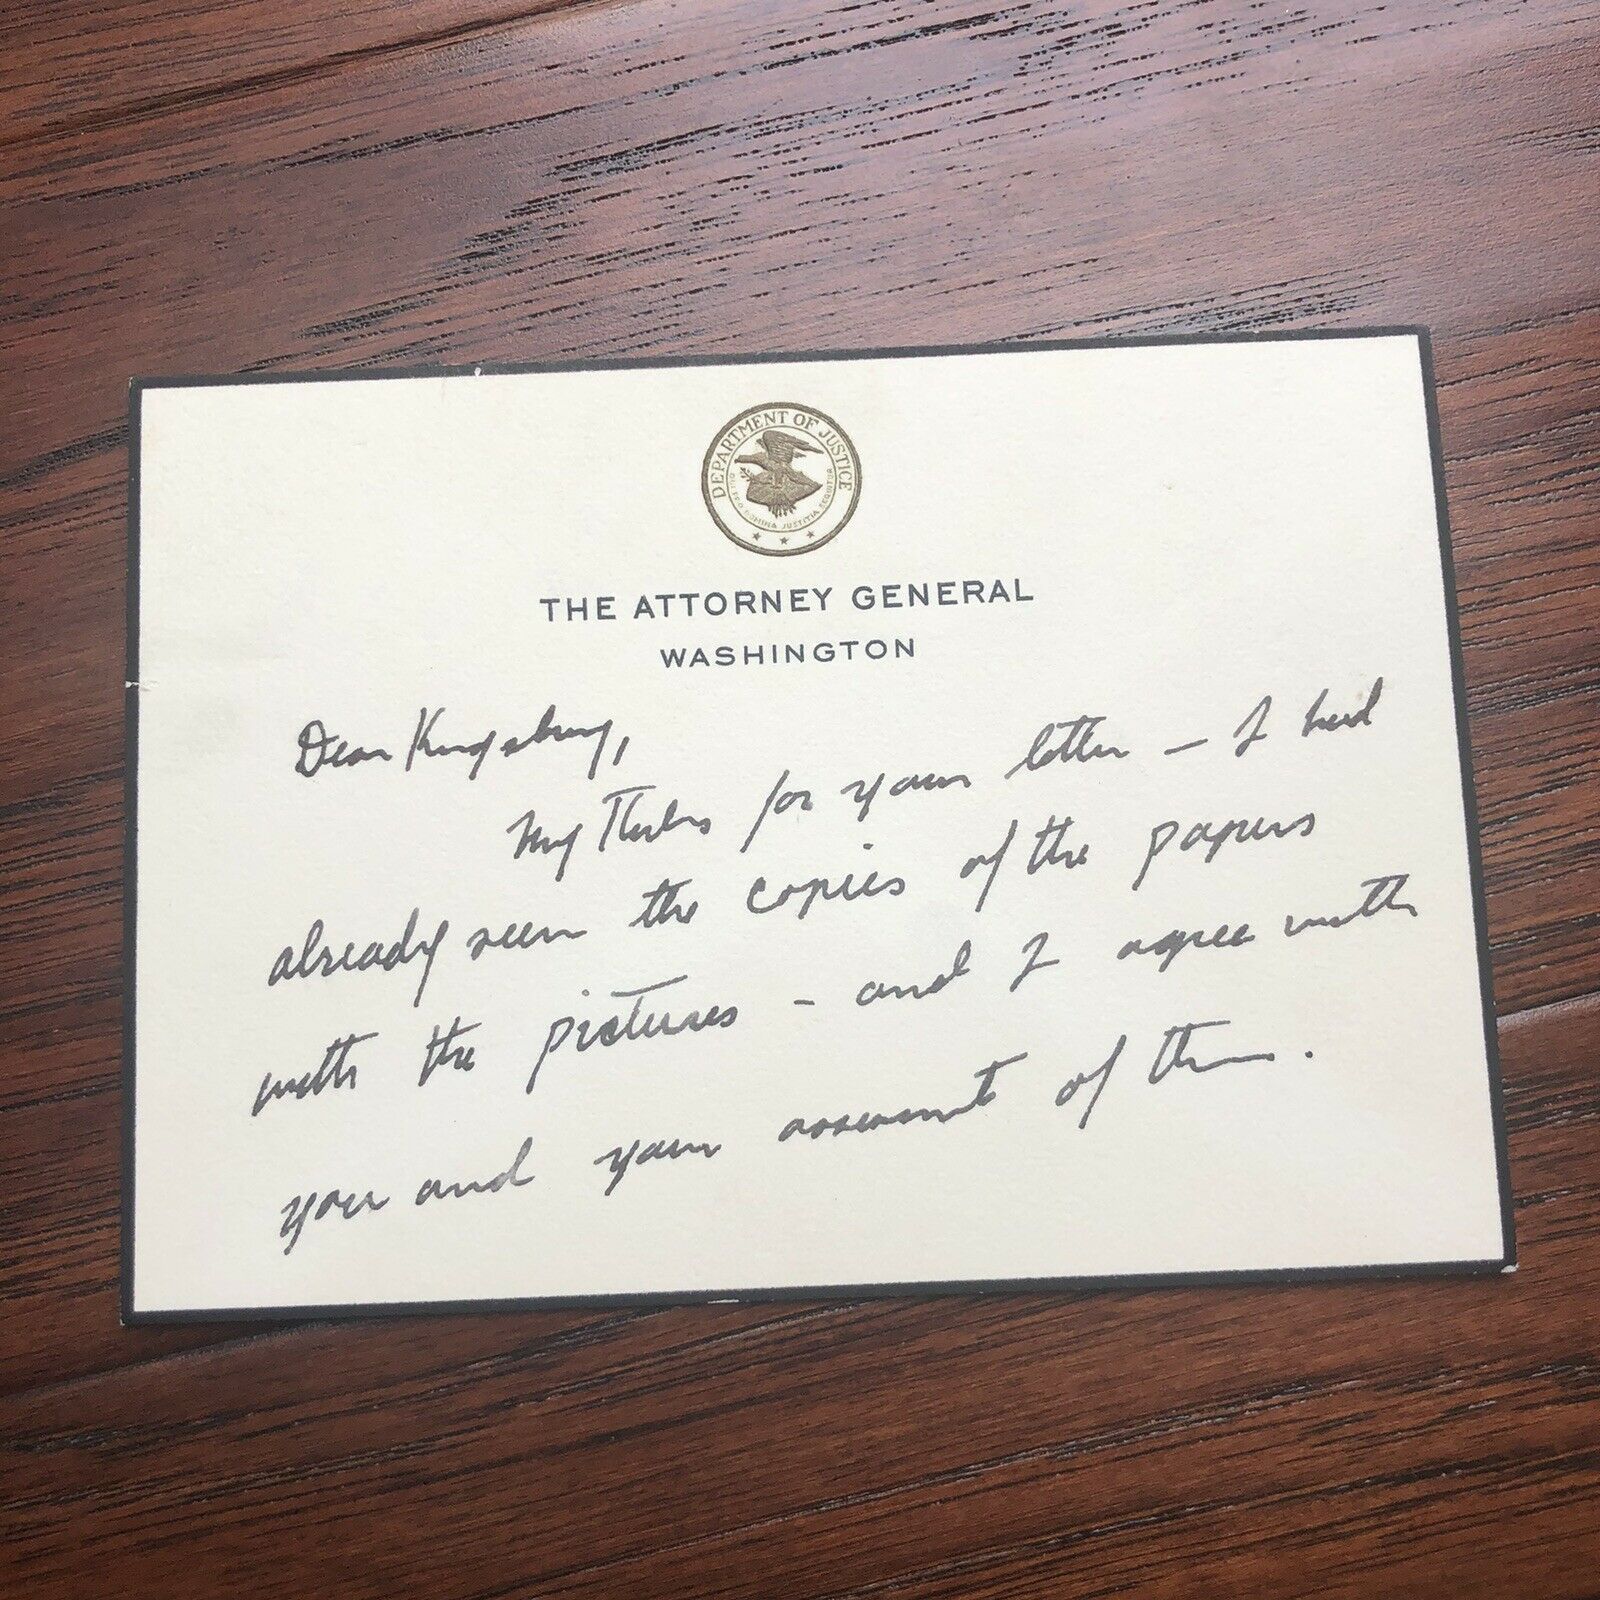 DEPARTMENT OF JUSTICE
QUI PRO DOMINA JUSTITIA SEQUITUR
THE ATTORNEY GENERAL
WASHINGTON
Dear Kingsbury,
My Thanks for your letter – I had
already seen the copies of the papers
with the pictures – and I agree with
you and your assessment of them.